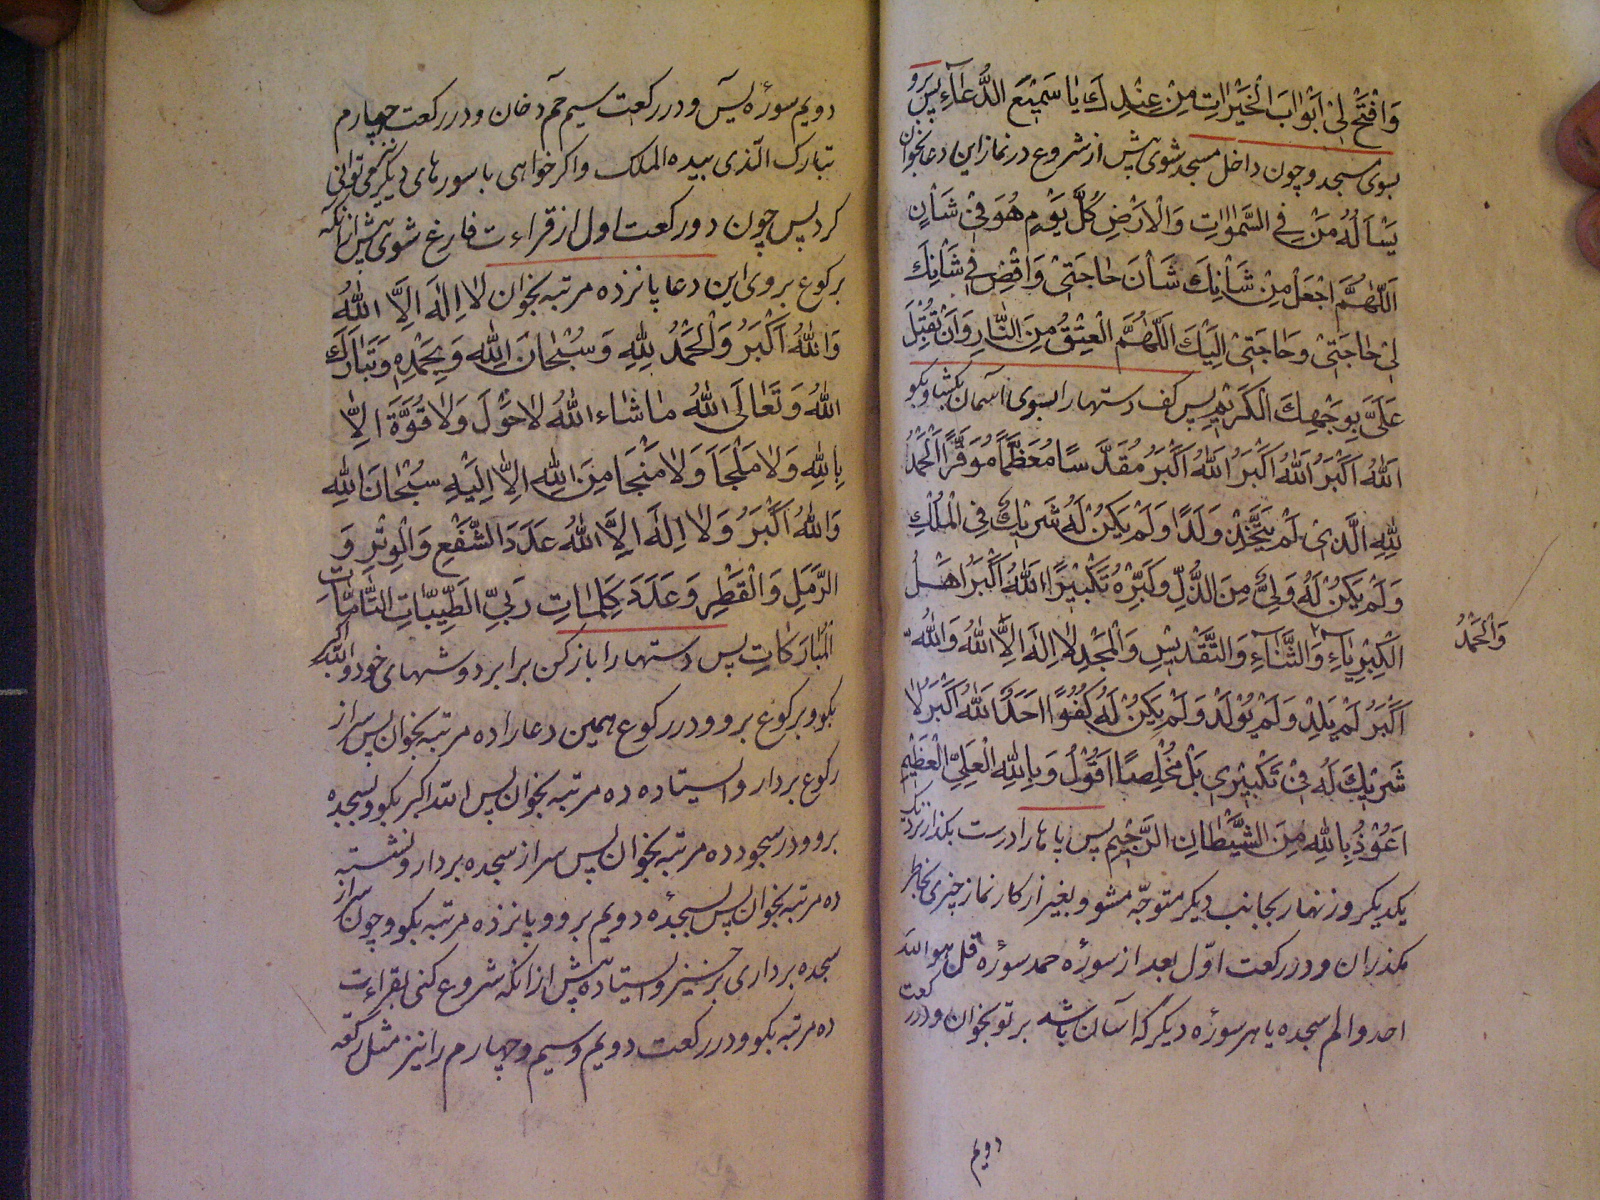 وَافْتَحْ لِیْ اَبْوَابَ الْخَیْرَاتِ مِنْ عِنْدِكَ یَا سَمِیْعَ الدُّعَآءِ پس برو
بسوی مسجد و چون داخل مسجد شوی پیش از شروع در نماز این دعا بخوان
یَسْاَلُهُ مَنْ فِی السَّمٰوٰاتِ وَالْاَرْضِ كُلَّ یَوْمٍ هُوَ فِیْ شَاْنٍ
اَللّٰهُمَّ اجْعَلْ مِنْ شَاْنِكَ شَاْنَ حٰاجَتِیْ وَاقْضِ فِیْ شَاْنِكَ
لِیْ حٰاجَتِیْ وَحَاجَتِیْ اِلَیْكَ اَللّٰهُمَّ الْعِتْقُ مِنَ النّٰارِ وَاَنْ تُقْبِلَ
عَلَیَّ بِوَجْهِكَ الْكَرِیْمِ پس کف دستها را بسوی آسمان بکشا و بکو
اَللّٰهُ اَكْبَرُ اَللّٰهُ اَكْبَرُ اَللّٰهُ اَكْبَرُ مُقَدَّسًا مُعَظَّمًا مُوَقَّرًا اَلْحَمْدُ
لِلّٰهِ الَّذِیْ لَمْ یَتَّخِذْ وَلَدًا وَلَمْ یَكُنْ لَهُ شَرِیْكٌ فِی الْمُلْكِ
وَلَمْ یَكُنْ لَهُ وَلِیٌّ مِنَ الذُّلِّ وَكَبِّرْهُ تَكْبِیْرًا اَللّٰهُ اَكْبَرُ اَهْلُ
الْكِبْرِیٰاءِ وَالثَّنَآءِ وَالتَّقْدِیْسِ وَالْمَجْدِ لٰا اِلٰهَ اِلَّا اللّٰهُ وَاللّٰهُ
وَالْحَمْدُ
اَكْبَرُ لَمْ یَلِدْ وَلَمْ یُوْلَدْ وَلَمْ یَكُنْ لَهُ كُفُوًا اَحَدًا اَللّٰهُ اَكْبَرُ لٰا
شَرِیْكَ لَهُ فِیْ تَكْبِیْرِی بَلْ مُخْلِصًا اَقُوْلُ وَبِاللّٰهِ الْعَلِیِّ الْعَظِیْمِ
اَعُوْذُ بِاللّٰهِ مِنَ الشَّیْطٰانِ الرَّجِیْمِ پس پاها را درست بکذار نزدیک
یکدیکر و زنهار بجانب دیکر متوجّه مشو و بغیر از کار نماز چیزی بخاطر
مکذران و در رکعت اوّل بعد از سورۀ حمد سورۀ قل هو الله
احد و الم سجده یا هر سورۀ دیکر که آسان باشد بر تو بخوان و در رکعت
دویم
دویم سورۀ یٓس و در رکعت سیم حٓم دخان و در رکعت چهارم
تبارک الّذی بیده الملک و اکر خواهی با سورهای دیکر نیز می توانی
کرد پس چون در رکعت اول از قراءت فارغ شوی پیش از آنکه
برکوع بروی این دعا پانزده مرتبه بخوان لٰا اِلٰهَ اِلَّا اللّٰهُ
وَاللّٰهُ اَكْبَرُ وَالْحَمْدُ لِلّٰهِ وَسُبْحٰانَ اللّٰهِ وَبِحَمْدِهٖ وَتَبَارَكَ
اللّٰهُ وَتَعٰالَی اللّٰهُ مٰا شٰاء اللّٰهُ لٰا حَوْلَ وَلٰا قُوَّةَ اِلّٰا
بِاللّٰهِ وَلٰا مَلْجَاَ وَلٰا مَنْجَا مِنَ اللّٰهِ اِلّٰا اِلَیْهِ سُبْحٰانَ اللّٰهِ
وَاللّٰهُ اَكْبَرُ وَلٰا اِلٰهَ اِلَّا اللّٰهُ عَدَدَ الشَّفْعِ وَالْوِتْرِ وَ
الرَّمَلِ وَالْقَطْرِ وَعَدَدَ كَلِمٰاتِ رَبِّیَ الطَّیِّبٰاتِ التَّامّٰاتِ
الْمُبَارَكٰاتِ پس دستها را باز کن برابر دوشهای خود و الله اکبر
بکو و برکوع برو و در رکوع همین دعا را ده مرتبه بخوان پس سر از
رکوع بردار و ایستاده ده مرتبه بخوان پس الله اکبر بکو و بسجده
برو و در سجود ده مرتبه بخوان پس سر از سجده بردار و نشسته
ده مرتبه بخوان پس بسجدۀ دویم برو و پانزده مرتبه بکو و چون سر از
سجده برداری برخیز و ایستاده پیش از آنکه شروع کنی بقراءت
ده مرتبه بکو و در رکعت دویم و سیم و چهارم را نیز مثل رکعة